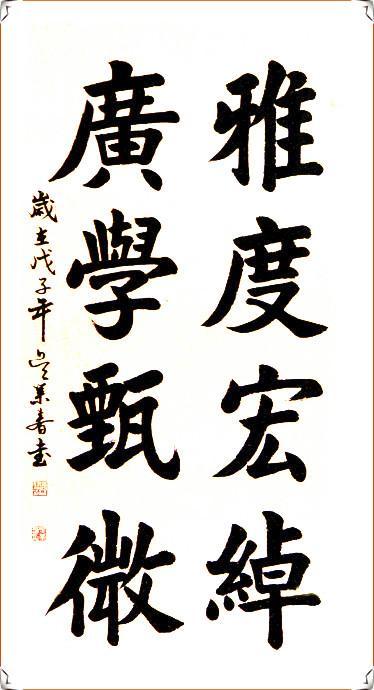 雅度宏綽
廣學甄微
歲在戊子年春書